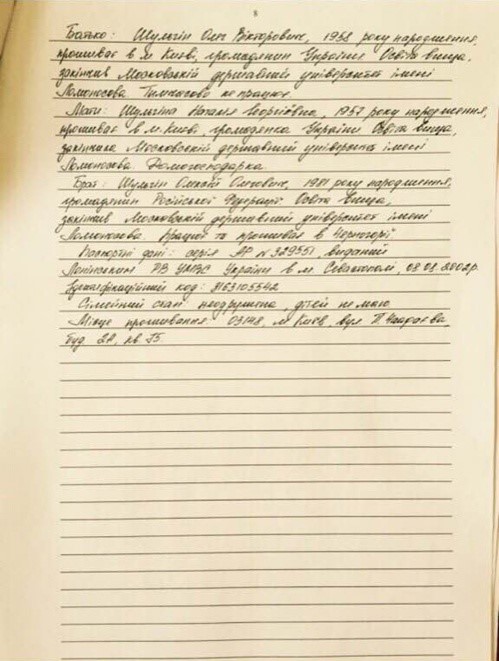 8
Батько: Шульгін Олег Вікторович, 1958 року народження,
проживає в м. Києві, громадянин України Освіта вища,
закінчив Московській державний університет імені
Ломоносова. Тимчасово не працює.
Мати: Шульгіна Наталія Георгіївна, 1957 року народження,
проживає в м. Києві, громадянка України Освіта вища,
закінчила Московській державний університет імені
Ломоносова Домогосподарка
Брат: Шульгін Олегович, 1981 року народження,
громадянин Російської Федерації Освіта вища,
закінчив Московській державний університет імені
Ломоносова Працює та проживає в Чорногорії
Паспортні дані: серія АР № 329551, виданий
Ленінським РВ УМВС України в м. Севастополі, 08.08.2002р.
Ідентифікаційний код: 3163105542
Сімейний стан: неодружена, дітей не маю
Місце проживання: 03148, м. Київ, вул.
буд 2А, кв 75.